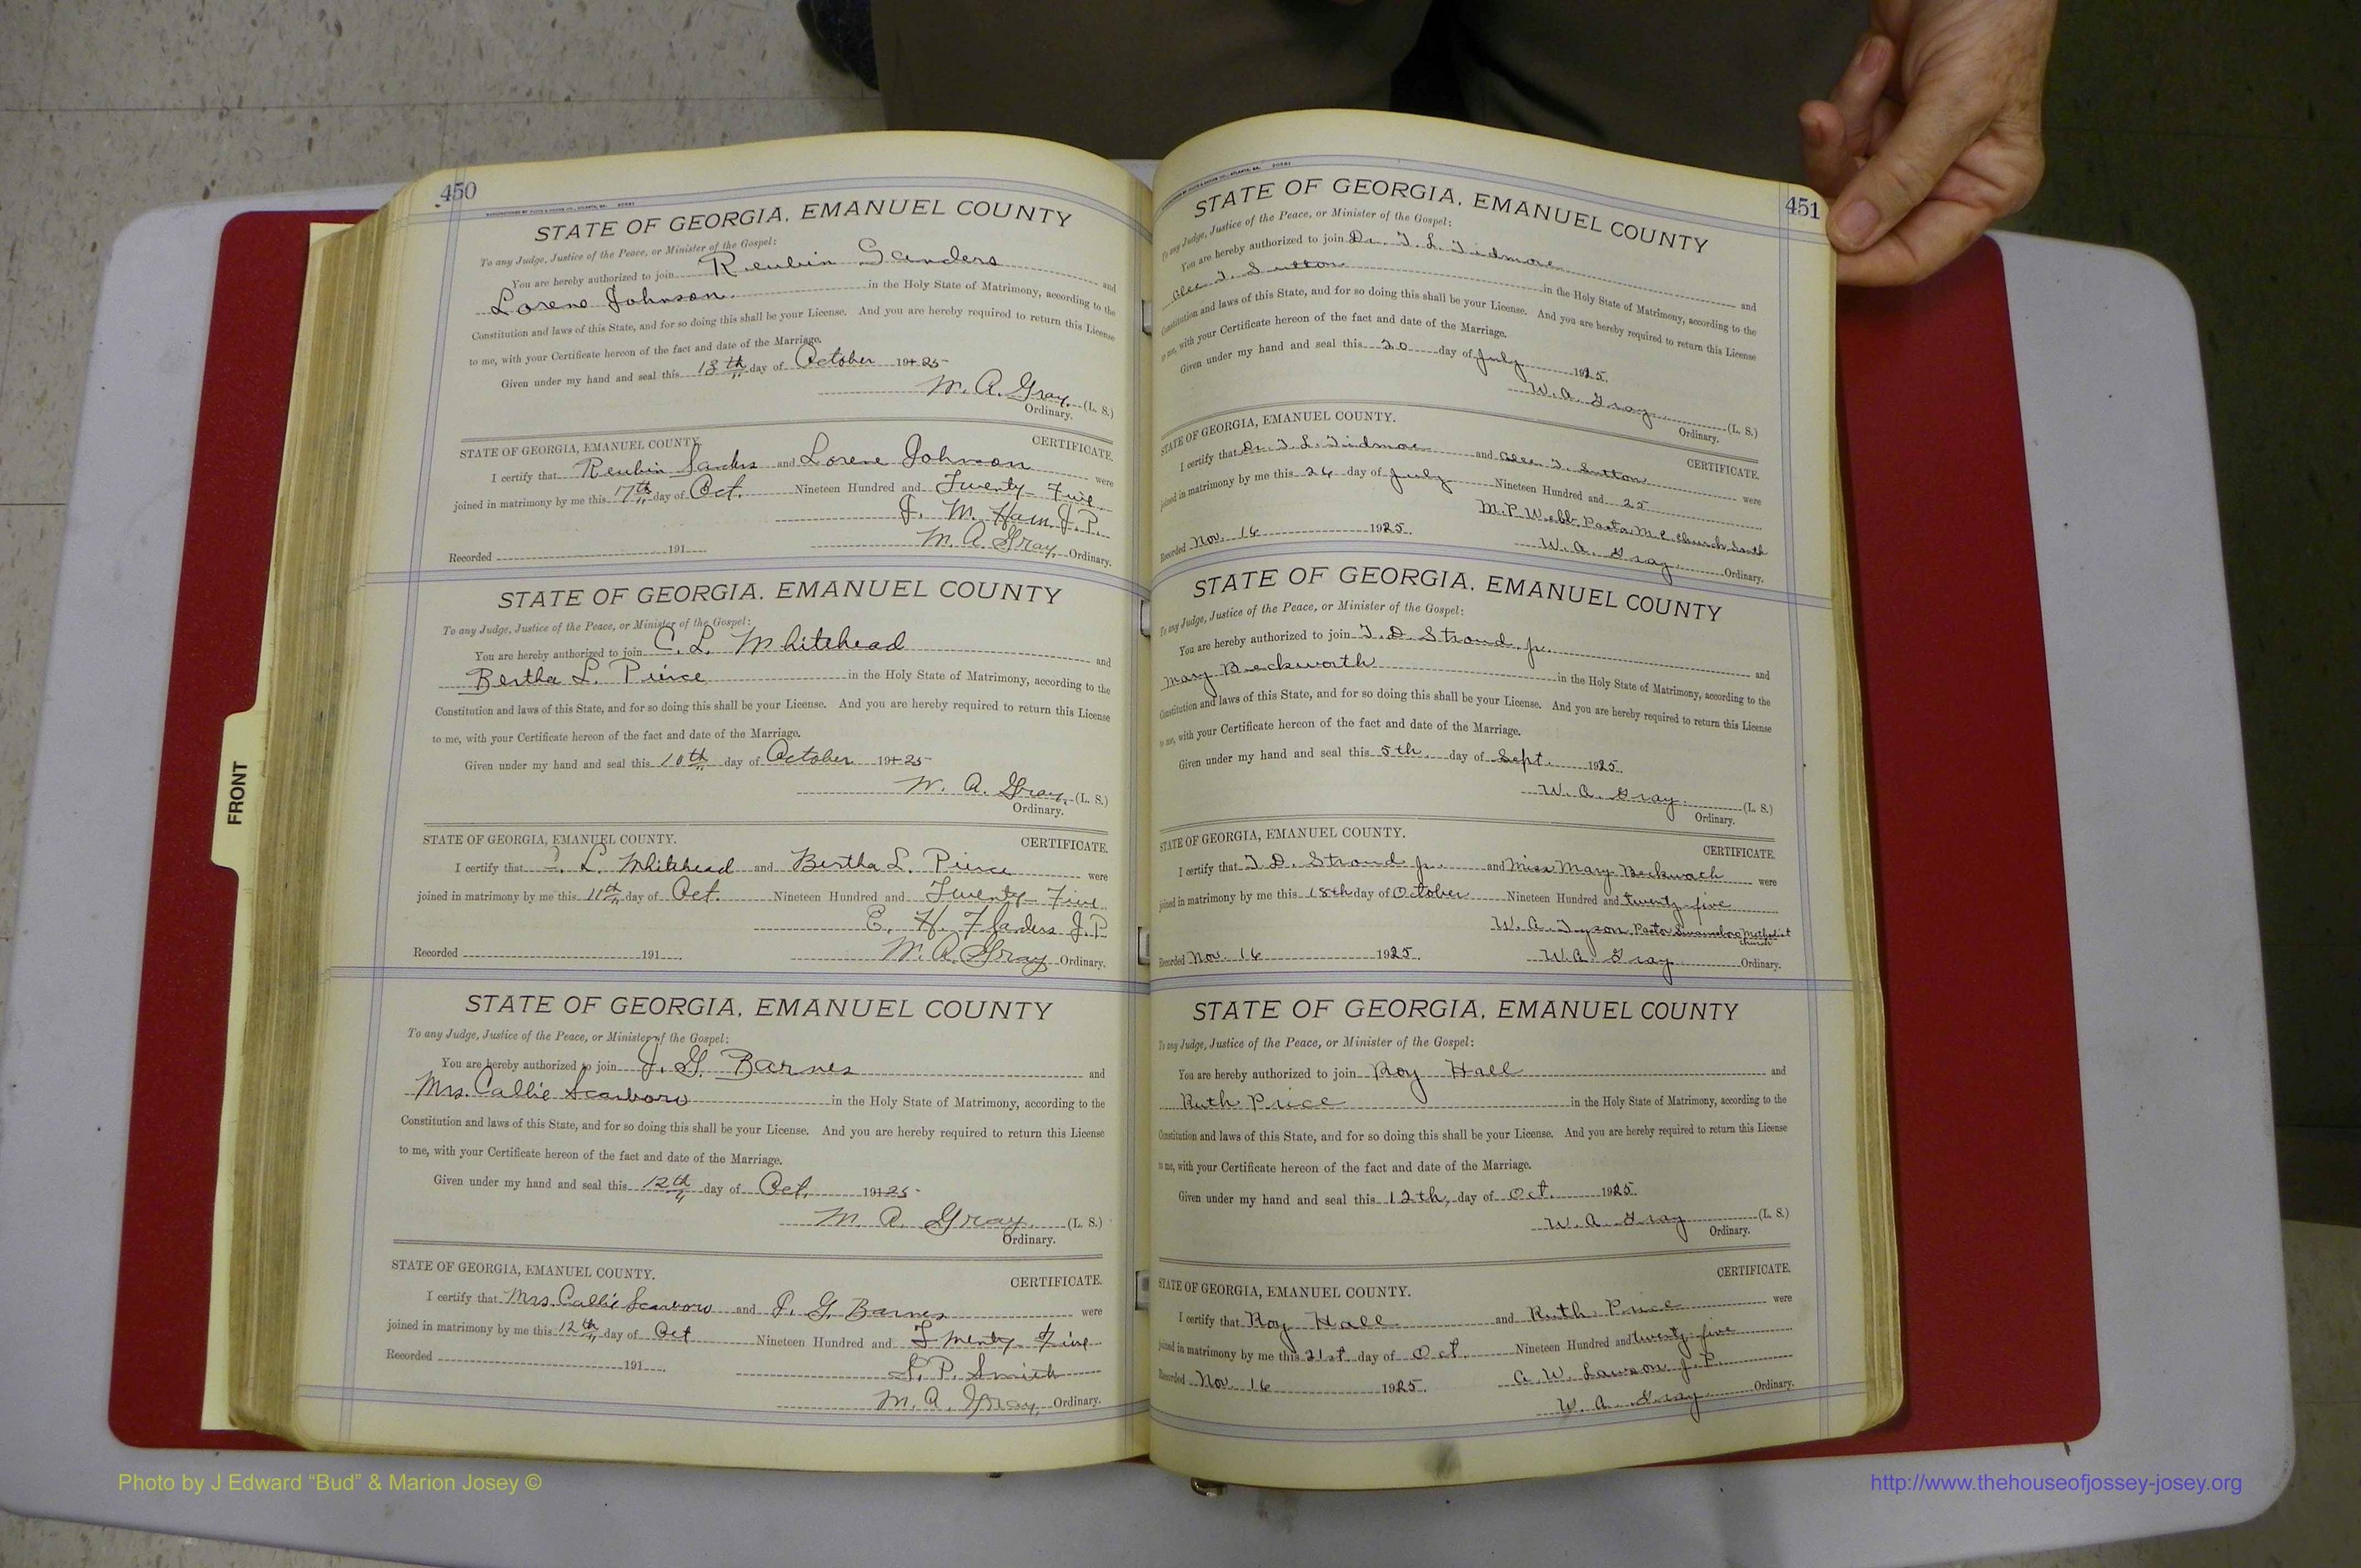 450
STATE OF GEORGIA, EMANUEL COUNTY
To any Judge, Justice of the Peace, or Minister of the Gospel:
You are hereby authorized to join Reubin Sanders and
Lorene Johnson in the Holy State of Matrimony, according to the
Constitution and laws of this State, and for so doing this shall be your License. And you are hereby required to return this License
to me, with your Certificate hereon of the fact and date of the Marriage.
Given under my hand and seal this 13th day of October 1925
W. A. Gray (L. S.)
Ordinary.
STATE OF GEORGIA, EMANUEL COUNTY. CERTIFICATE.
I certify that Reubin Sanders and Lorene Johnson were
joined in matrimony by me this 17th day of Oct. Nineteen Hundred and Twenty Five
J. M. Ham J.P.
Recorded 191 W. A. Gray, Ordinary.
STATE OF GEORGIA, EMANUEL COUNTY
To any Judge, Justice of the Peace, or Minister of the Gospel:
You are hereby authorized to join C. L. Whitehead and
Bertha L. Pierce in the Holy State of Matrimony, according to the
Constitution and laws of this State, and for so doing this shall be your License. And you are hereby required to return this License
to me, with your Certificate hereon of the fact and date of the Marriage.
Given under my hand and seal this 10th day of October 1925
W. A. Gray, (L. S.)
Ordinary.
STATE OF GEORGIA, EMANUEL COUNTY. CERTIFICATE.
I certify that C. L. Whitehead and Bertha L. Pierce were
joined in matrimony by me this 11th day of Oct. Nineteen Hundred and Twenty Five
E. H. Flanders J.P.
Recorded 191 W. A. Gray Ordinary.
STATE OF GEORGIA, EMANUEL COUNTY
To any Judge, Justice of the Peace, or Minister of the Gospel:
You are hereby authorized to join J. G. Barnes and
Mrs. Callie Scarboro in the Holy State of Matrimony, according to the
Constitution and laws of this State, and for so doing this shall be your License. And you are hereby required to return this License
to me, with your Certificate hereon of the fact and date of the Marriage.
Given under my hand and seal this 12th day of Oct. 1925
W. A. Gray. (L. S.)
Ordinary.
STATE OF GEORGIA, EMANUEL COUNTY. CERTIFICATE.
I certify that Mrs. Callie Scarboro and J. G. Barnes were
joined in matrimony by me this 12th day of Oct Nineteen Hundred and Twenty Five
S. P. Smith
Recorded 191 W. A. Gray, Ordinary.
451
STATE OF GEORGIA, EMANUEL COUNTY
To any Judge, Justice of the Peace, or Minister of the Gospel:
You are hereby authorized to join Dr. T. L. Tidmore and
Alee T. Sutton in the Holy State of Matrimony, according to the
Constitution and laws of this State, and for so doing this shall be your License. And you are hereby required to return this License
to me, with your Certificate hereon of the fact and date of the Marriage.
Given under my hand and seal this 20 day of July 1925.
W. A. Gray (L. S.)
Ordinary.
STATE OF GEORGIA, EMANUEL COUNTY. CERTIFICATE.
I certify that Dr. T. L. Tidmore and Alee T. Sutton were
joined in matrimony by me this 26 day of July Nineteen Hundred and 25
M. P. Webb, Pastor M. E. Church South
Recorded Nov. 16 1925. W. A. Gray Ordinary.
STATE OF GEORGIA, EMANUEL COUNTY
To any Judge, Justice of the Peace, or Minister of the Gospel:
You are hereby authorized to join T. D. Stroud, Jr. and
Mary Beckworth in the Holy State of Matrimony, according to the
Constitution and laws of this State, and for so doing this shall be your License. And you are hereby required to return this License
to me, with your Certificate hereon of the fact and date of the Marriage.
Given under my hand and seal this 5th, day of Sept. 1925.
W. A. Gray. (L. S.)
Ordinary.
STATE OF GEORGIA, EMANUEL COUNTY. CERTIFICATE.
I certify that T. D. Stroud Jr. and Miss Mary Beckwach were
joined in matrimony by me this 18th day of October Nineteen Hundred and twenty five
W. A. Tyson, Pastor Swainsboro Methodist Church
Recorded Nov. 16 1925. W. A. Gray Ordinary.
STATE OF GEORGIA, EMANUEL COUNTY
To any Judge, Justice of the Peace, or Minister of the Gospel:
You are hereby authorized to join Roy Hall and
Ruth Price in the Holy State of Matrimony, according to the
Constitution and laws of this State, and for so doing this shall be your License. And you are hereby required to return this License
to me, with your Certificate hereon of the fact and date of the Marriage.
Given under my hand and seal this 12th, day of Oct. 1925.
W. A. Gray (L. S.)
Ordinary.
STATE OF GEORGIA, EMANUEL COUNTY. CERTIFICATE.
I certify that Roy Hall and Ruth Price were
joined in matrimony by me this 21st day of Oct. Nineteen Hundred and twenty five
A. W. Lawson J. P.
Recorded Nov. 16 1925. W. A. Gray Ordinary.
FRONT
Photo by J Edward “Bud” & Marion Josey ©
http://www.thehouseofjossey-josey.org